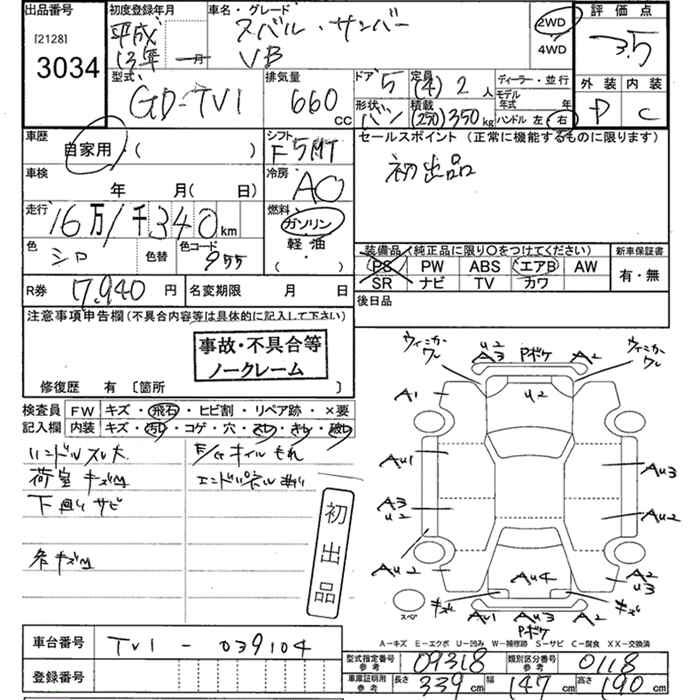 出品番号
[2128]
3034
初度登録年月
平成
13年 ― 月
車名・グレード
スバル・サンバー
VB
2WD
4WD
評価点
3.5
型式
GD-TV1
排気量
660 cc
ドア 5
定員 (4) 2 人
形状 バン
積載 (250) 350 kg
ディーラー・並行
モデル年式 年
ハンドル 左 右
外装 内装
D C
車歴
自家用・( )
シフト
F5MT
セールスポイント (正常に機能するものに限ります)
初出品
車検
年 月( 日)
冷房
AC
走行
16万1千340km
燃料
ガソリン
軽・油
( )
色
シロ
色替
色コード
955
装備品(純正品に限り○をつけてください)
新車保証書
PS PW ABS エアB AW
SR ナビ TV カワ
有・無
R券
17,940 円
名変期限 月 日
後日品
注意事項申告欄 (不具合内容等は具体的に記入して下さい)
事故・不具合等
ノークレーム
修復歴 有〔箇所 〕
検査員
記入欄
FW キズ・飛石・ヒビ割・リペア跡・×要
内装 キズ・汚れ・コゲ・穴・
ハンドルスレ大
F/Gオイルもれ
荷室キズM
エンドパネル
下廻りサビ
各キズM
初出品
ウィニカーワレ
U2
A3
Pボケ
A2
ウィニカーワレ
A1
U2
AU1
AU3
A3
U2
AU2
AU2
AU4
A2
U2
キズ
キズ
スペア
AU1
AU3
A2
Pボケ
A-キズ E-エクボ U-凹み W-補修跡 S-サビ C-腐食 XX-交換済
車台番号
TV1 - 039104
登録番号
型式指定番号 参考
09318
類別区分番号 参考
0118
車庫証明用 参考
長さ 339 cm
幅 147 cm
高さ 190 cm